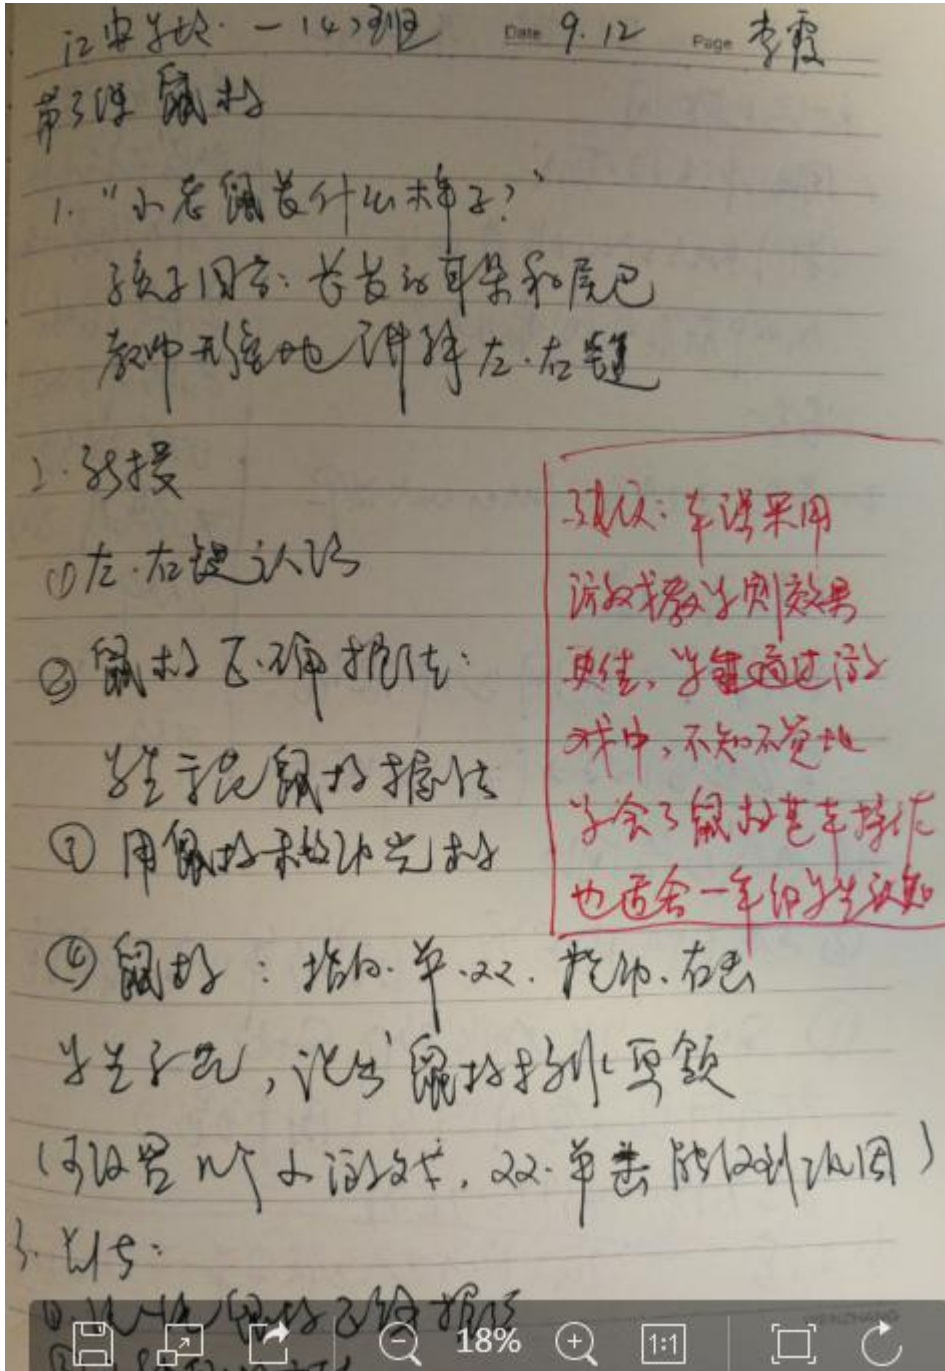 江安学校 一(4)班 Date 9.12 Page 李霞
第3课 鼠标
1. "小老鼠长什么样子?"
孩子回答: 长长的耳朵和尾巴
教师形象地讲解左.右键
2. 新授
(1)左.右键认识
② 鼠标正确握法:
学生示范鼠标握法
③ 用鼠标来移动光标
④ 鼠标: 指向.单.双.拖动.右击
学生示范, 说出鼠标操作要领
(可设置几个小游戏, 双.单击能得到巩固)
3. 总结:
鼠标正确握法
建议: 本课采用
游戏教学则效果
更佳, 学生通过游
戏中, 不知不觉地
学会了鼠标基本操作
也适合一年级学生认知
18%
1:1